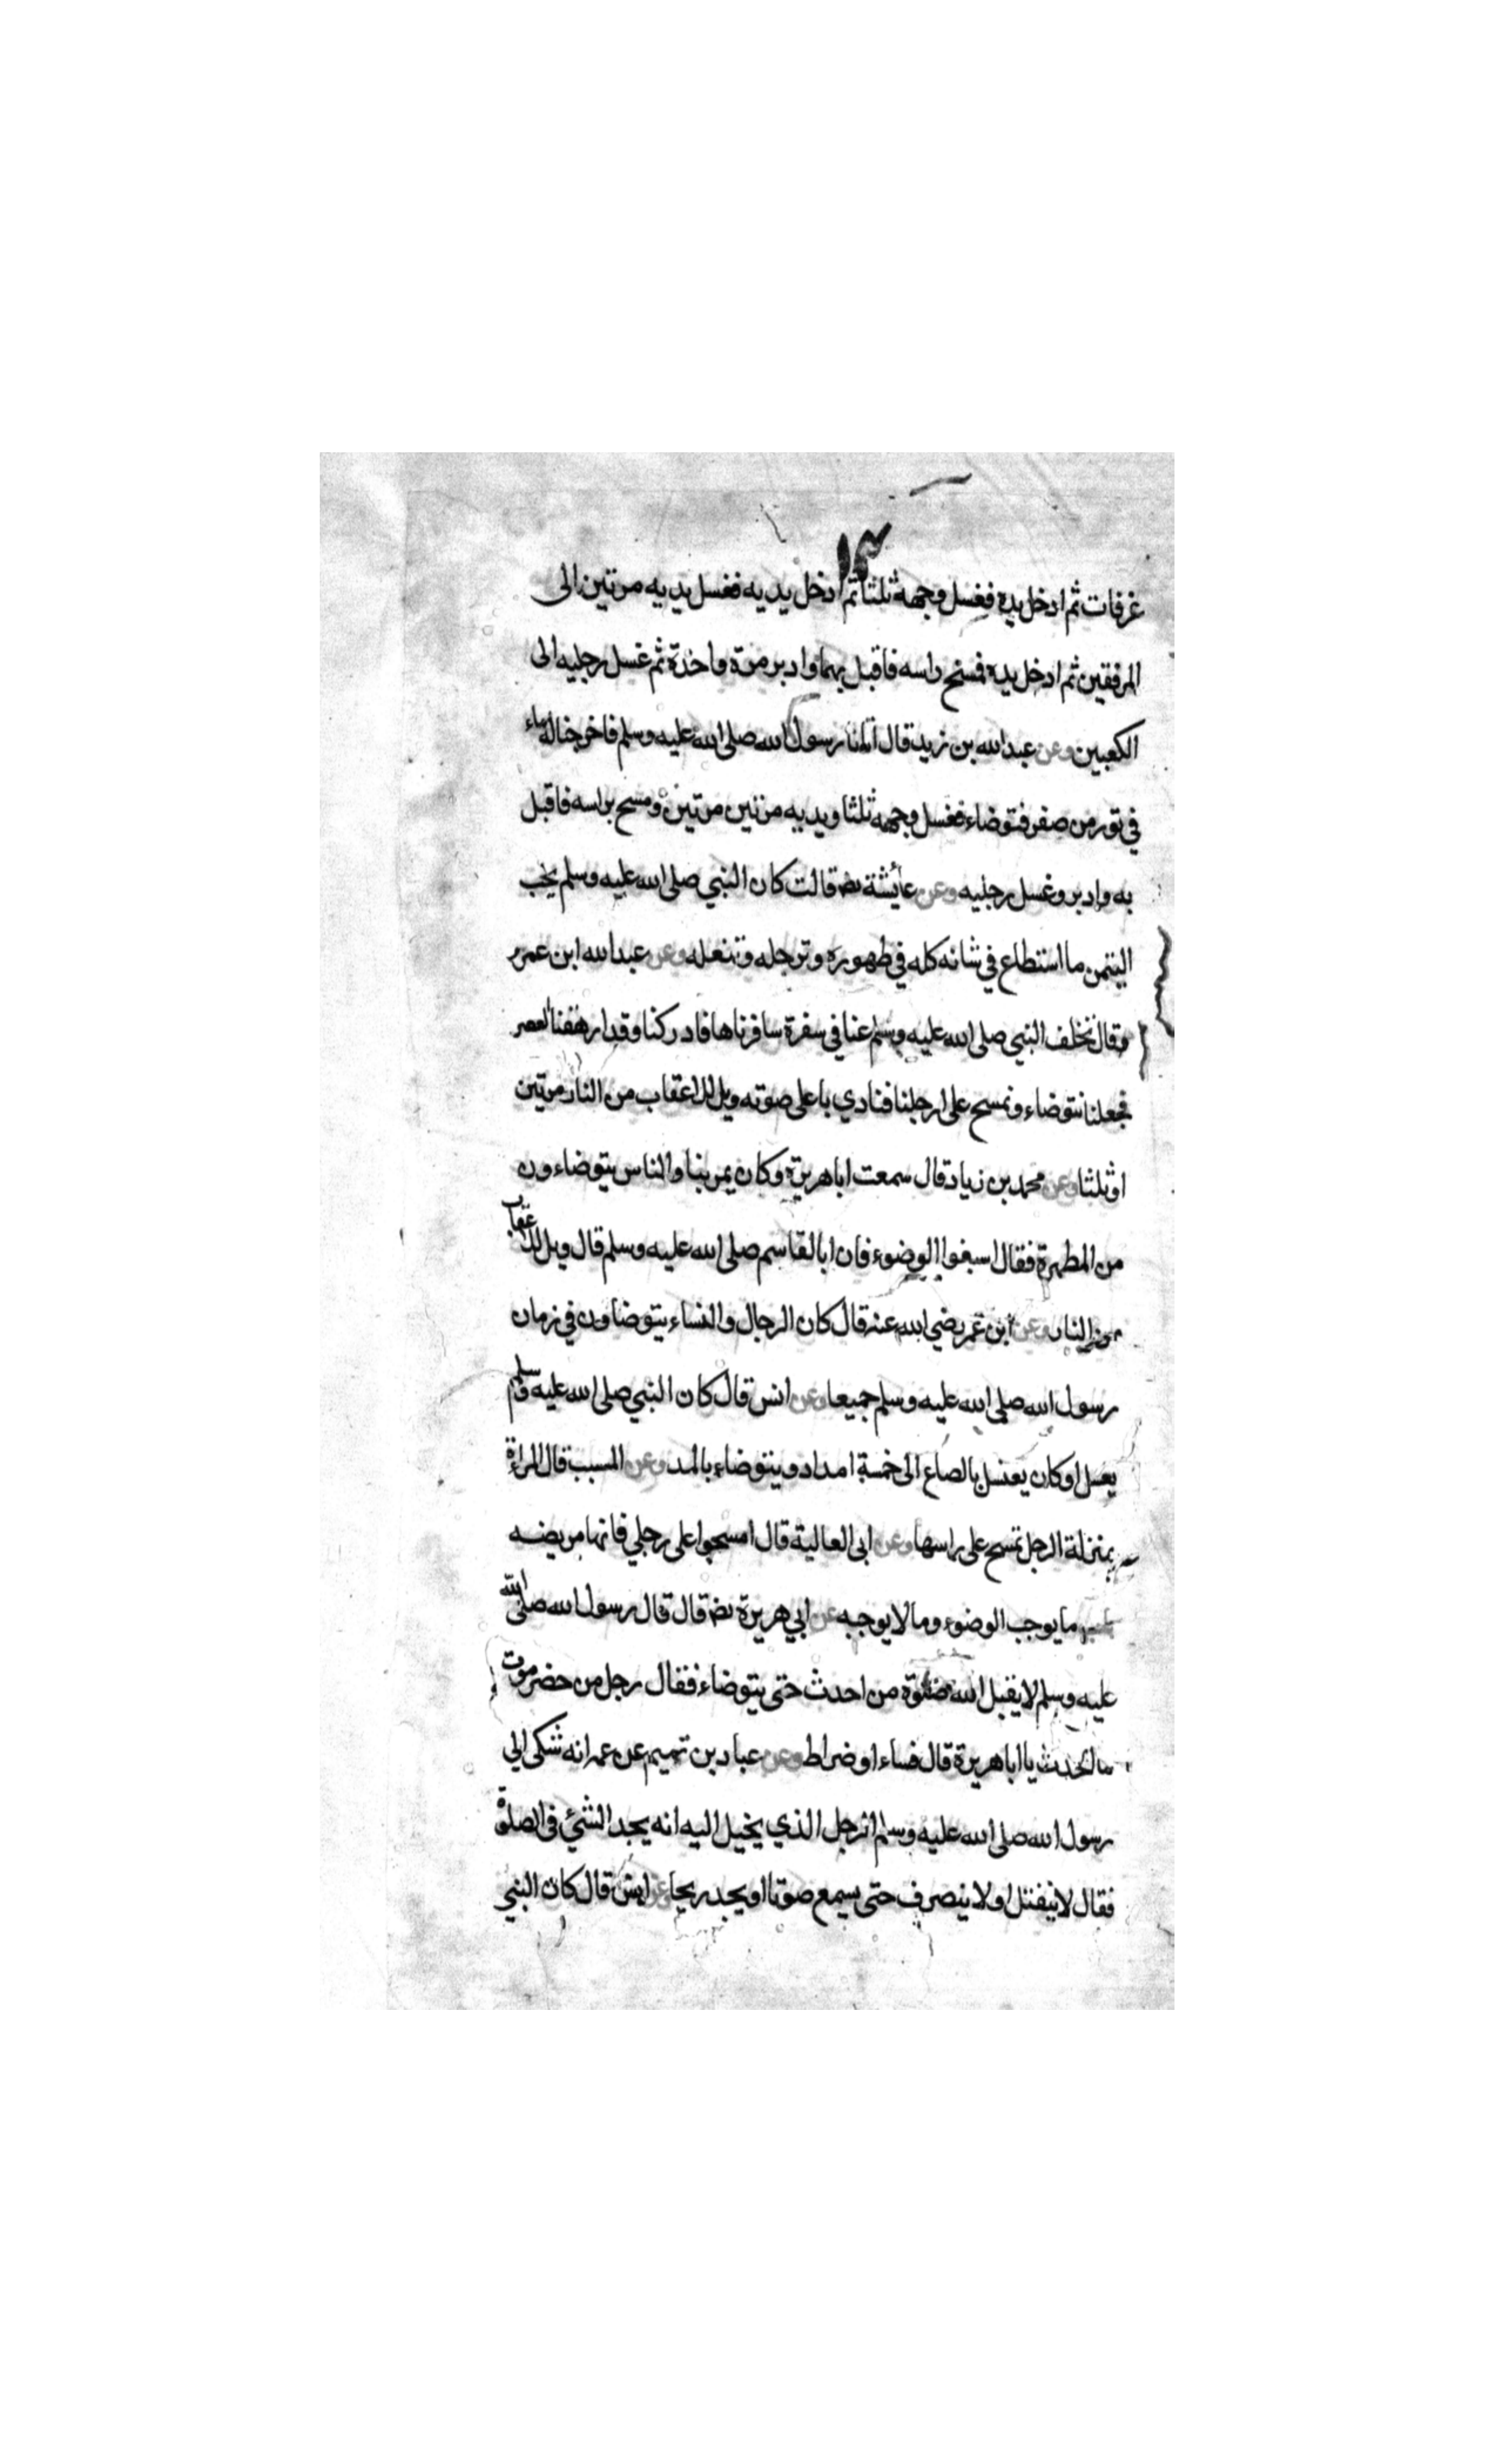 ١٣
غرفات ثم ادخل يده فغسل وجهه ثلثا ثم ادخل يديه فغسل يديه مرتين الى
المرفقين ثم ادخل يده فمسح راسه فاقبل بهما وادبر مرة واحدة ثم غسل رجليه الى
الكعبين وعن عبد الله بن زيد قال اتانا رسول الله صلى الله عليه وسلم فاخرجنا له ماء
في تور من صفر فتوضاء فغسل وجهه ثلثا ويديه مرتين مرتين ومسح براسه فاقبل
به وادبر وغسل رجليه وعن عائشة رضـ قالت كان النبي صلى الله عليه وسلم يحب
التيمن ما استطاع في شانه كله في طهوره وترجله وتنعله وعن عبد الله ابن عمرو
وقال تخلف النبي صلى الله عليه وسلم عنا في سفرة سافرناها فادركنا وقد ارهقنا العصر
فجعلنا نتوضاء ونمسح على ارجلنا فنادي باعلى صوته ويل للاعقاب من النار مرتين
او ثلثا وعن محمد بن زياد قال سمعت اباهريرة وكان يمر بنا والناس يتوضاءون
من المطهرة فقال اسبغوا الوضوء فان ابا القاسم صلى الله عليه وسلم قال ويل للاعقاب
من النار وعن ابن عمر رضي الله عنه قال كان الرجال والنساء يتوضاون في زمان
رسول الله صلى الله عليه وسلم جميعا وعن انس قال كان النبي صلى الله عليه وسلم
يغسل او كان يغتسل بالصاع الى خمسة امداد ويتوضاء بالمد وعن المسيب قال المراة
بمنزلة الرجل تمسح على راسها وعن ابى العالية قال امسحوا على رجلي فانها مريضه
ما يوجب الوضوء وما لا يوجبه عن ابي هريرة رضـ قال قال رسول الله صلى الله
عليه وسلم لا يقبل الله صلوة من احدث حتى يتوضاء فقال رجل من حضرموت
ما الحدث يا اباهريرة قال فساء او ضراط وعن عباد بن تميم عن عمه انه شكى الي
رسول الله صلى الله عليه وسلم الرجل الذي يخيل اليه انه يجد الشئ في الصلوة
فقال لا ينفتل او لا ينصرف حتى يسمع صوتا او يجد ريحا وعن انس قال كان النبي